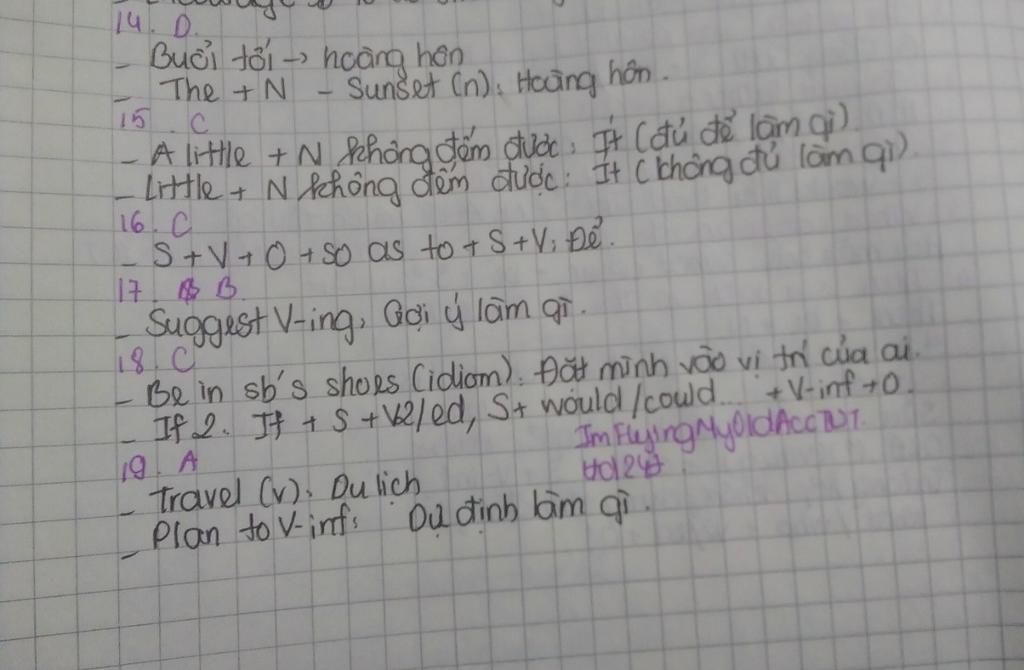 14. D.
- Buổi tối → hoàng hôn
- The + N - Sunset (n): Hoàng hôn.
15. C
- A little + N không đếm được: Ít (đủ để làm gì)
- Little + N không đếm được: Ít (không đủ làm gì)
16. C
- S + V + O + so as to + S + V: Để.
17. B
- Suggest V-ing: Gợi ý làm gì.
18. C
- Be in sb's shoes (idiom): Đặt mình vào vị trí của ai.
- If 2: If + S + V2/ed, S + would/could... + V-inf + O.
ImFlyingMyOldAccTUT.
Hd247
19. A
- Travel (v): Du lịch
- Plan to V-inf: Dự định làm gì.